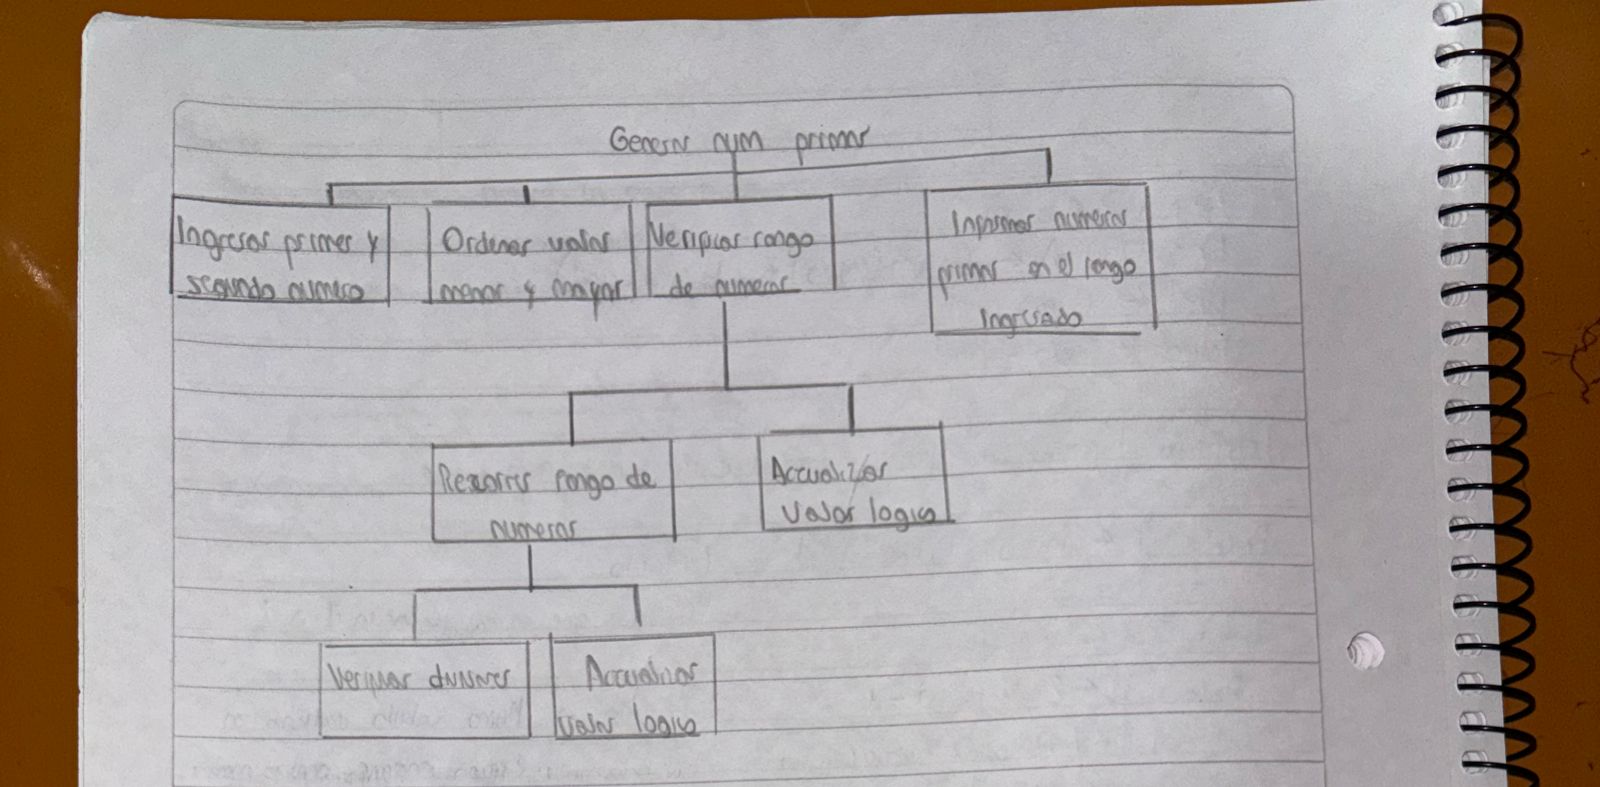 Generar num primos
Ingresar primer y
segundo numero
Ordenar valor
menor y mayor
Verificar rango
de numeros
Imprimir numeros
primos en el rango
ingresado
Recorrer rango de
numeros
Actualizar
valor logico
Verificar divisores
Actualizar
valor logico